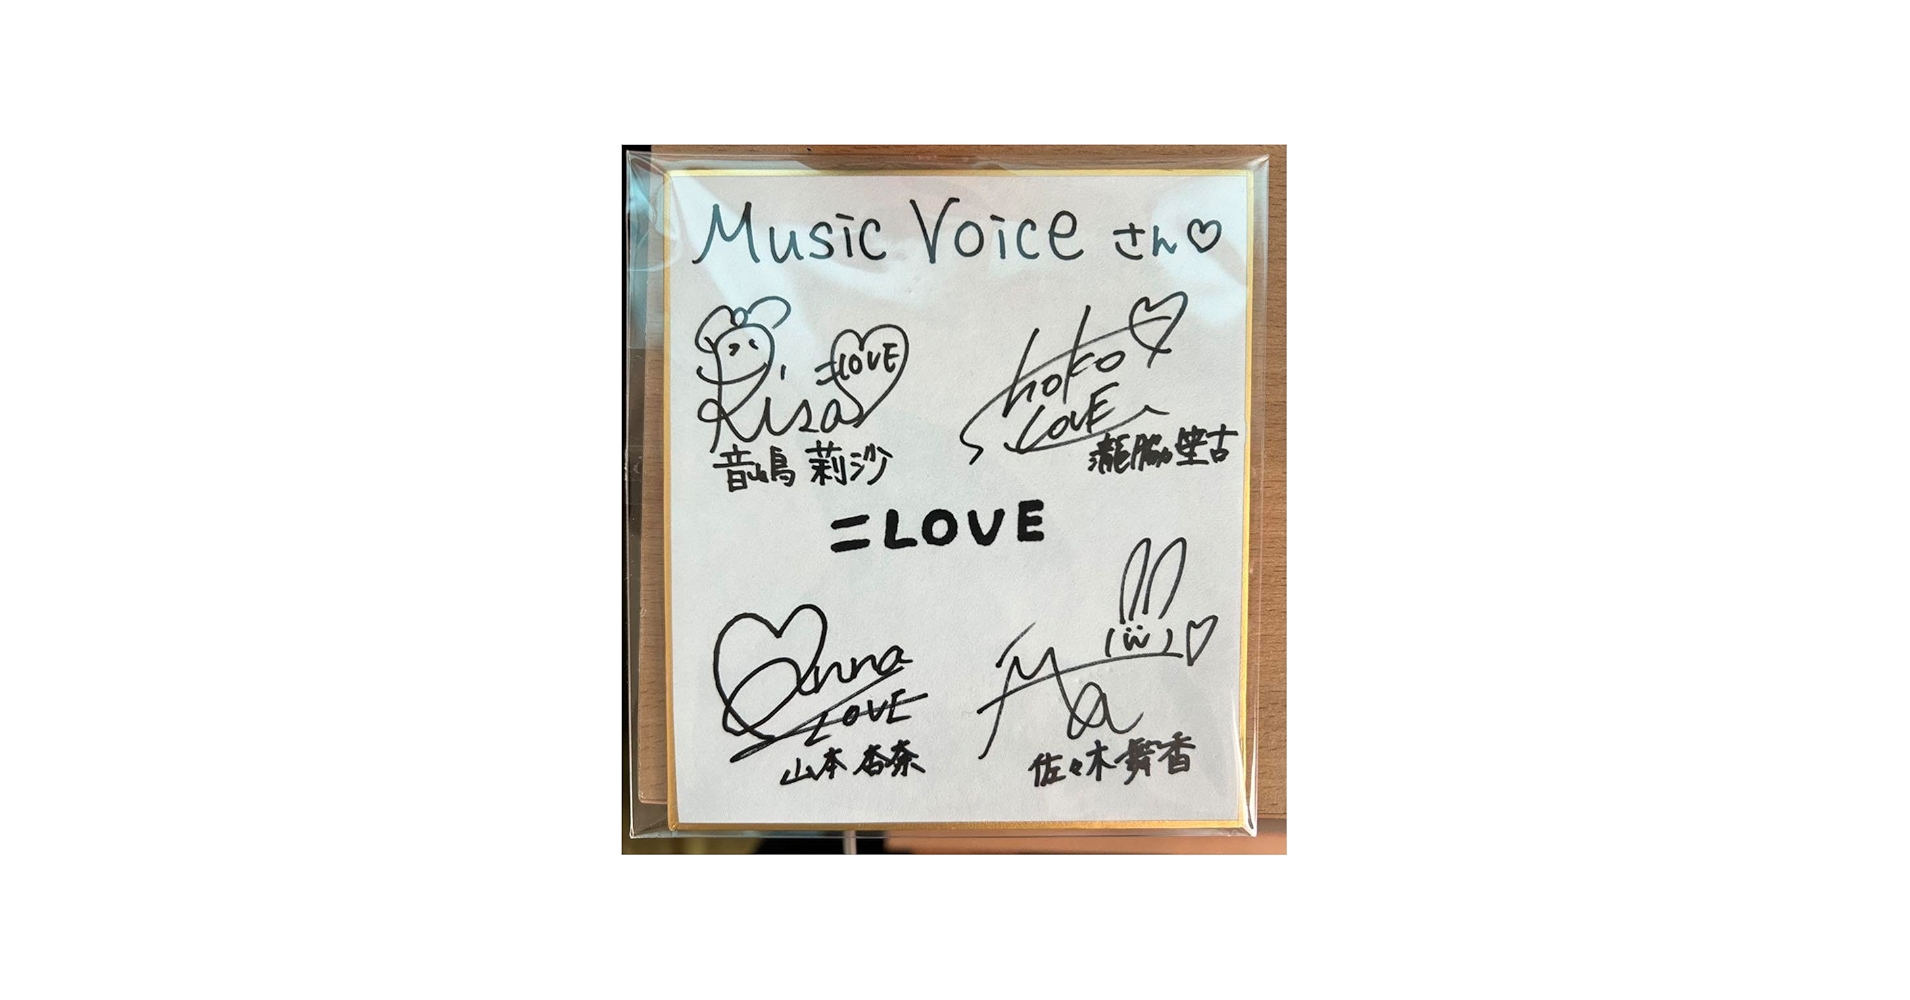 Music Voice さん♡
=LOVE
Risa
音嶋 莉沙
Shoko
LOVE
瀧脇 笙古
=LOVE
anna
LOVE
山本 杏奈
Ma
佐々木 舞香